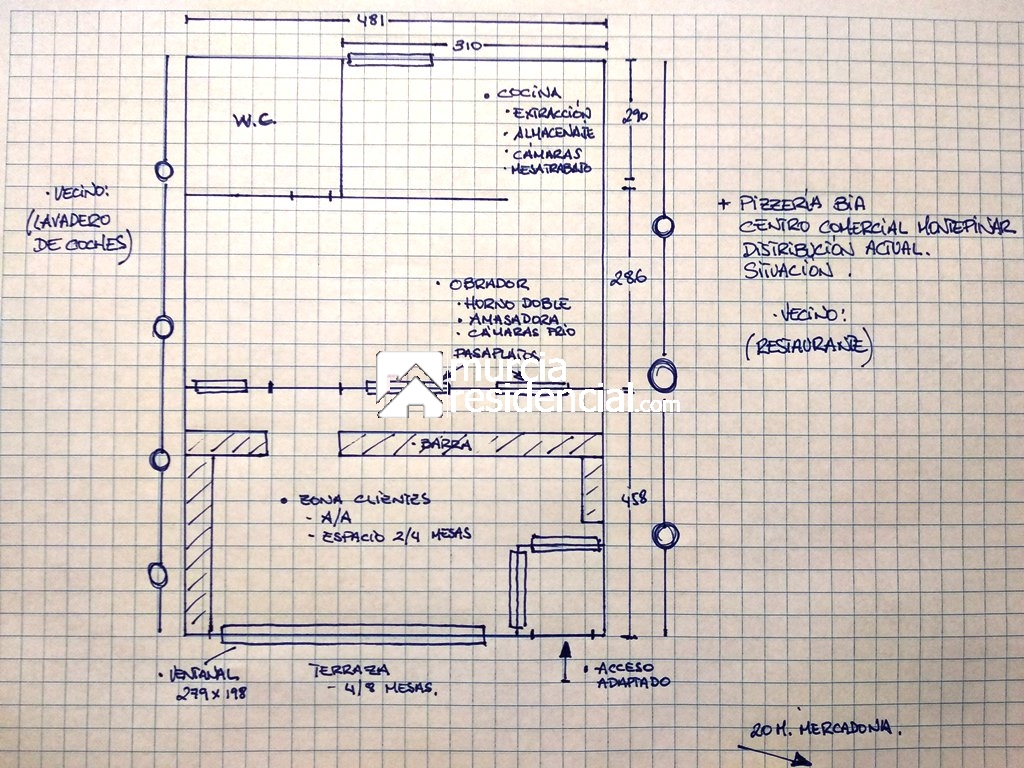 481
310
W.C.
• COCINA
· EXTRACCIÓN
· ALMACENAJE
· CÁMARAS
· MESA TRABAJO
290
· VECINO:
(LAVADERO
DE COCHES)
+ PIZZERÍA BIA
CENTRO COMERCIAL MONTEPINAR
DISTRIBUCIÓN ACTUAL.
SITUACIÓN.
· VECINO:
(RESTAURANTE)
286
· OBRADOR
· HORNO DOBLE
• AMASADORA
· CÁMARAS FRÍO
PASAPLATOS
murcia
residencial.com
· BARRA
• ZONA CLIENTES
- A/A
- ESPACIO 2/4 MESAS
458
· VENTANAL
279 x 198
TERRAZA
- 4/8 MESAS.
• ACCESO
ADAPTADO
20 M. MERCADONA.